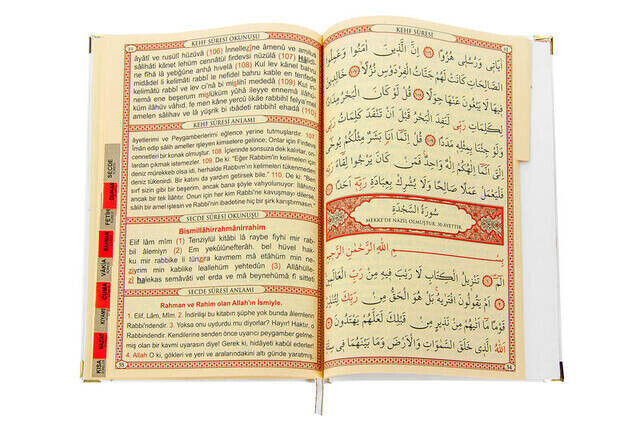 KEHF SÛRESİ OKUNUŞU
âyâtî ve rusulî hüzüvâ (106) İnnellezîne âmenû ve amilus
sâlihâti kânet lehüm cennâtül firdevsi nüzülâ (107) Hâlidî-
ne fîhâ lâ yebğûne anhâ hıvelâ (108) Kul lev kânel bahru
midâdel li kelimâti rabbî le nefidel bahru kable en tenfede
kelimâtü rabbî ve lev ci'nâ bi mislihî mededâ (109) Kul in-
nemâ ene beşerum mislüküm yûhâ ileyye ennemâ ilâhü-
küm ilâhüv vâhıd, fe men kâne yercû likâe rabbihî felya'mel
amelen sâlihav ve lâ yüşrik bi ibâdeti rabbihî ehadâ (110)
KEHF SÛRESİ ANLAMI
âyetlerimi ve Peygamberlerimi eğlence yerine tutmuşlardır. 107.
İman edip sâlih ameller işleyen kimselere gelince; Onlar için Firdevs
cennetleri bir konak olmuştur. 108. İçlerinde sonsuza dek kalırlar, on-
lardan çıkmak istemezler. 109. De ki: "Eğer Rabbimin kelimeleri için
deniz mürekkep olsa idi, herhalde Rabbimin kelimeleri tükenmeden
deniz tükenirdi. Bir katını da yardım getirsek bile." 110. De ki: "Ben
sırf sizin gibi bir beşerim, ancak bana şöyle vahyolunuyor: İlâhınız
ancak bir tek ilâhtır. Onun için her kim Rabbine kavuşmayı dilerse
SECDE SÛRESİ OKUNUŞU
Bismillâhirrahmânirrahîm
Elif lâm mîm (1) Tenzîlül kitâbi lâ raybe fîhi mir rab-
bil âlemîyn (2) Em yekûlûnefterâh, bel hüvel hak-
ku mir rabbike li tünzira kavmem mâ etâhüm min ne-
zîyrim min kablike leallehüm yehtedûn (3) Allâhülle-
zî halekas semâvâti vel erda ve mâ beynehümâ fî sitteti
SECDE SÛRESİ ANLAMI
Rahman ve Rahim olan Allah'ın İsmiyle.
1. Elif, Lâm, Mîm. 2. İndirilişi bu kitabın şüphe yok bunda âlemlerin
Rabbi'ndendir. 3. Yoksa onu uydurdu mu diyorlar? Hayır! Haktır, o
Rabbindendir. Kendilerine senden önce uyarıcı peygamber gelme-
miş olan bir kavmi uyarasın diye! Gerek ki, hidâyeti kabûl ederler!
4. Allah O ki, gökleri ve yeri ve aralarındakini altı günde yaratmış,
SECDE
FETİH
VAKIA
CUMA
KIYAME
KISA
KEHF SÛRESİ
اٰيَاتٖي وَرُسُلٖي هُزُوًا اِنَّ الَّذٖينَ اٰمَنُوا وَعَمِلُوا
الصَّالِحَاتِ كَانَتْ لَهُمْ جَنَّاتُ الْفِرْدَوْسِ نُزُلًا خَالِدٖينَ
فٖيهَا لَا يَبْغُونَ عَنْهَا حِوَلًا قُلْ لَوْ كَانَ الْبَحْرُ مِدَادًا
لِكَلِمَاتِ رَبّٖي لَنَفِدَ الْبَحْرُ قَبْلَ اَنْ تَنْفَدَ كَلِمَاتُ رَبّٖي
وَلَوْ جِئْنَا بِمِثْلِهٖ مَدَدًا قُلْ اِنَّمَا اَنَا بَشَرٌ مِثْلُكُمْ يُوحٰى
اِلَيَّ اَنَّمَا اِلٰهُكُمْ اِلٰهٌ وَاحِدٌ فَمَنْ كَانَ يَرْجُوا لِقَاءَ رَبِّهٖ
فَلْيَعْمَلْ عَمَلًا صَالِحًا وَلَا يُشْرِكْ بِعِبَادَةِ رَبِّهٖ اَحَدًا
سُورَةُ السَّجْدَةِ
MEKKE'DE NAZİL OLMUŞTUR. 30 AYETTİR.
بِسْمِ اللّٰهِ الرَّحْمٰنِ الرَّحٖيمِ
الٓمٓ تَنْزٖيلُ الْكِتَابِ لَا رَيْبَ فٖيهِ مِنْ رَبِّ الْعَالَمٖينَ
اَمْ يَقُولُونَ افْتَرٰيهُ بَلْ هُوَ الْحَقُّ مِنْ رَبِّكَ لِتُنْذِرَ
قَوْمًا مَا اَتٰيهُمْ مِنْ نَذٖيرٍ مِنْ قَبْلِكَ لَعَلَّهُمْ يَهْتَدُونَ
اَللّٰهُ الَّذٖي خَلَقَ السَّمٰوَاتِ وَالْاَرْضَ وَمَا بَيْنَهُمَا فٖي